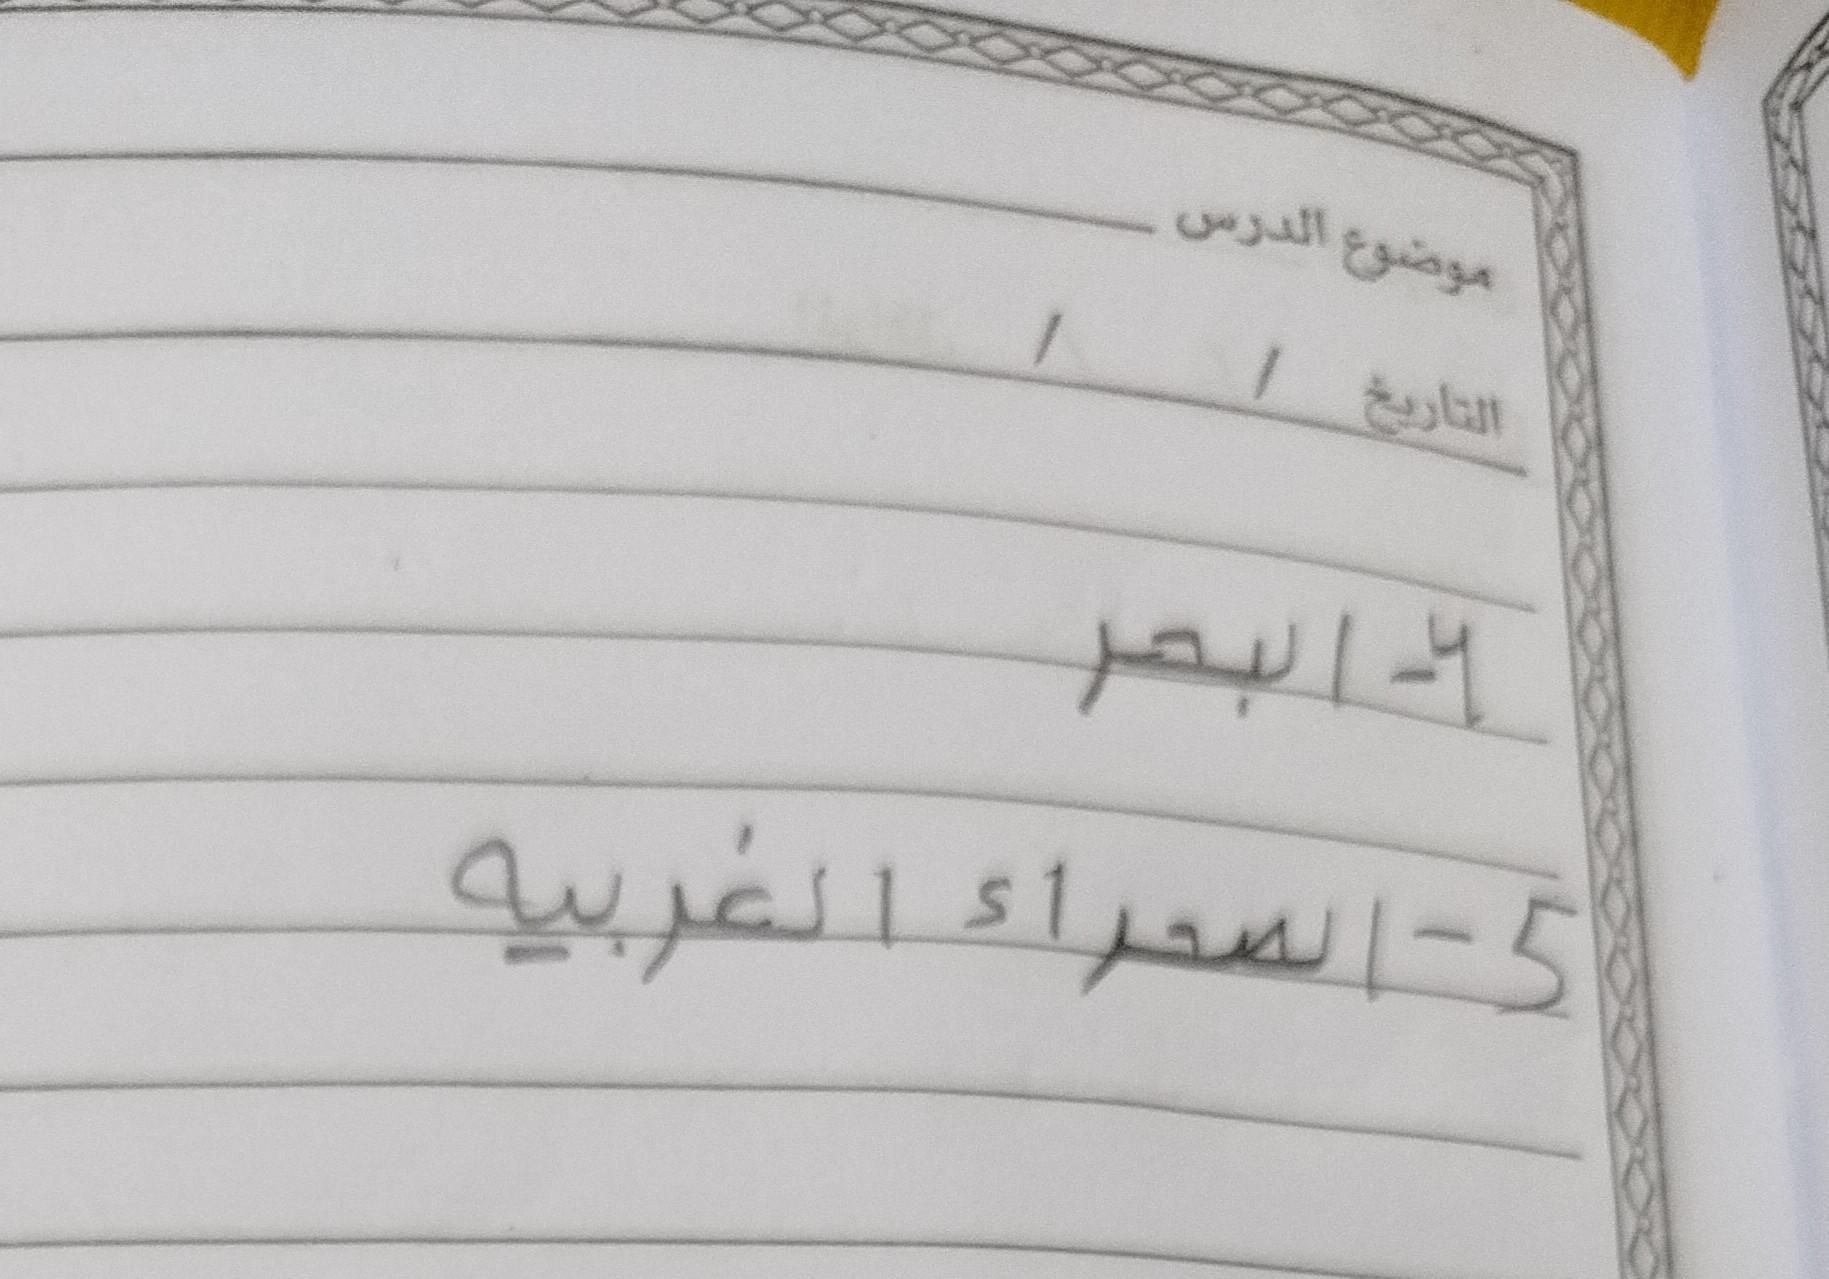 موضوع الدرس
التاريخ / /
4- البحر
5- الصحراء الغربيه